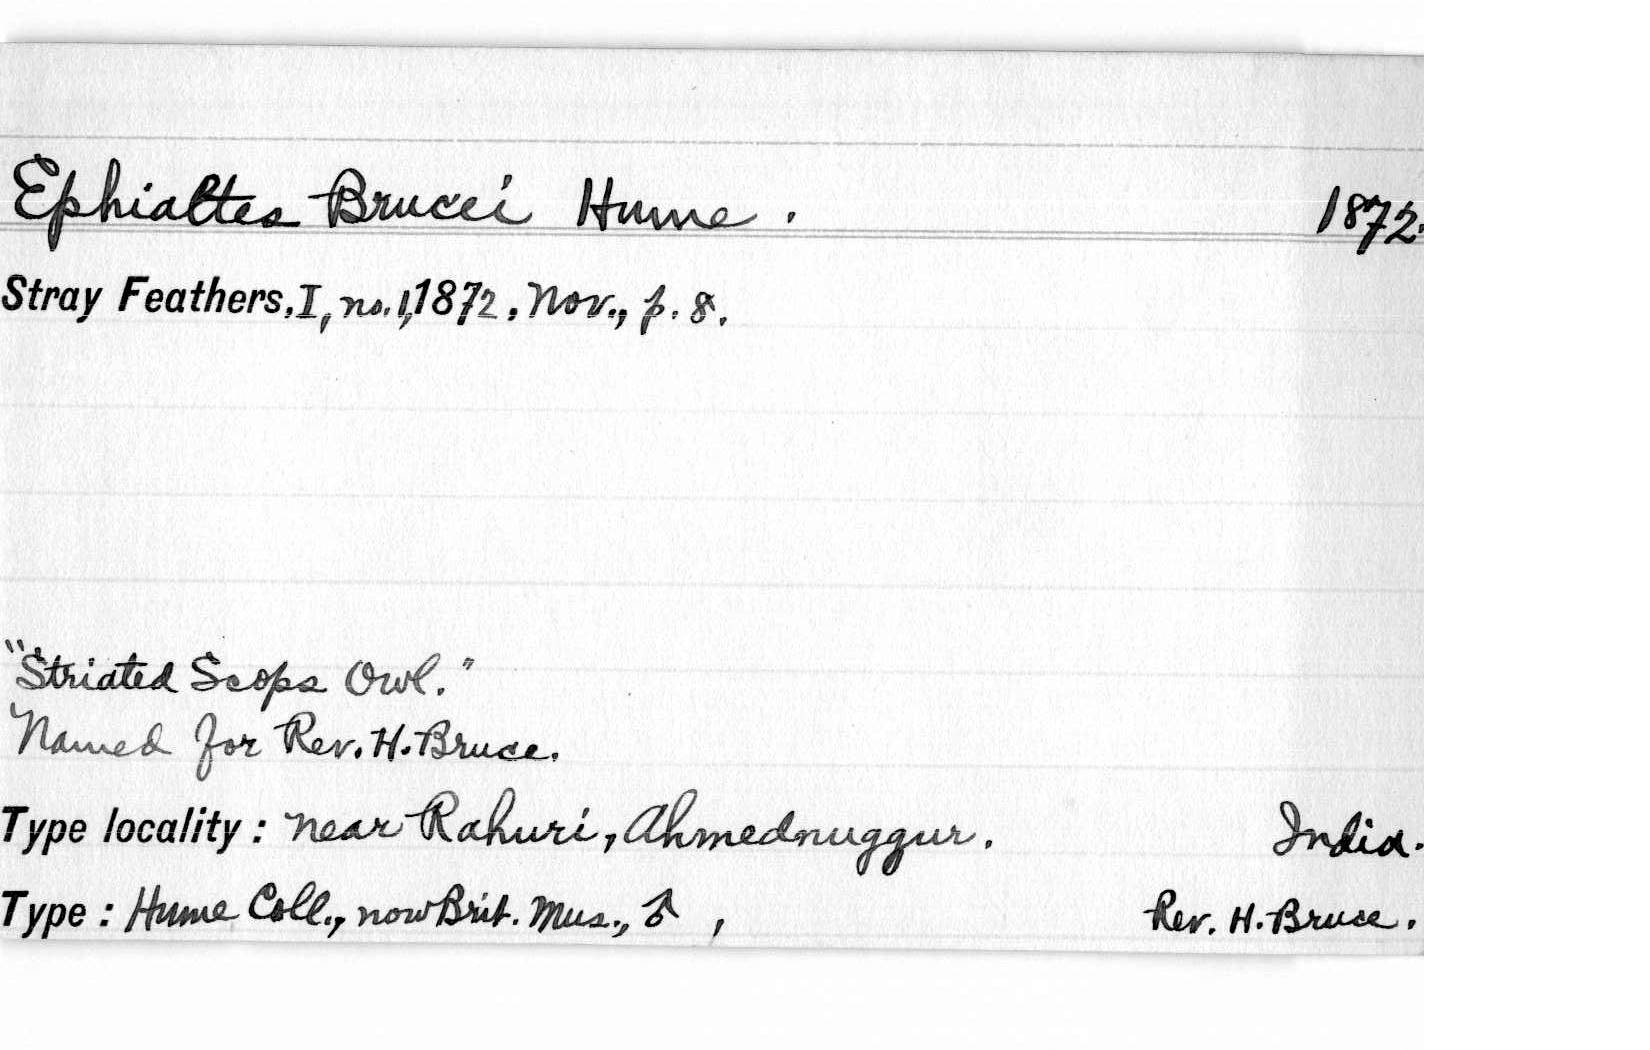 Ephialtes Brucei Hume. 1872.
Stray Feathers, I, no. 1, 1872, Nov., p. 8.
"Striated Scops Owl."
Named for Rev. H. Bruce.
Type locality: near Rahuri, Ahmednuggur. India.
Type: Hume Coll., now Brit. Mus., ♂, Rev. H. Bruce.